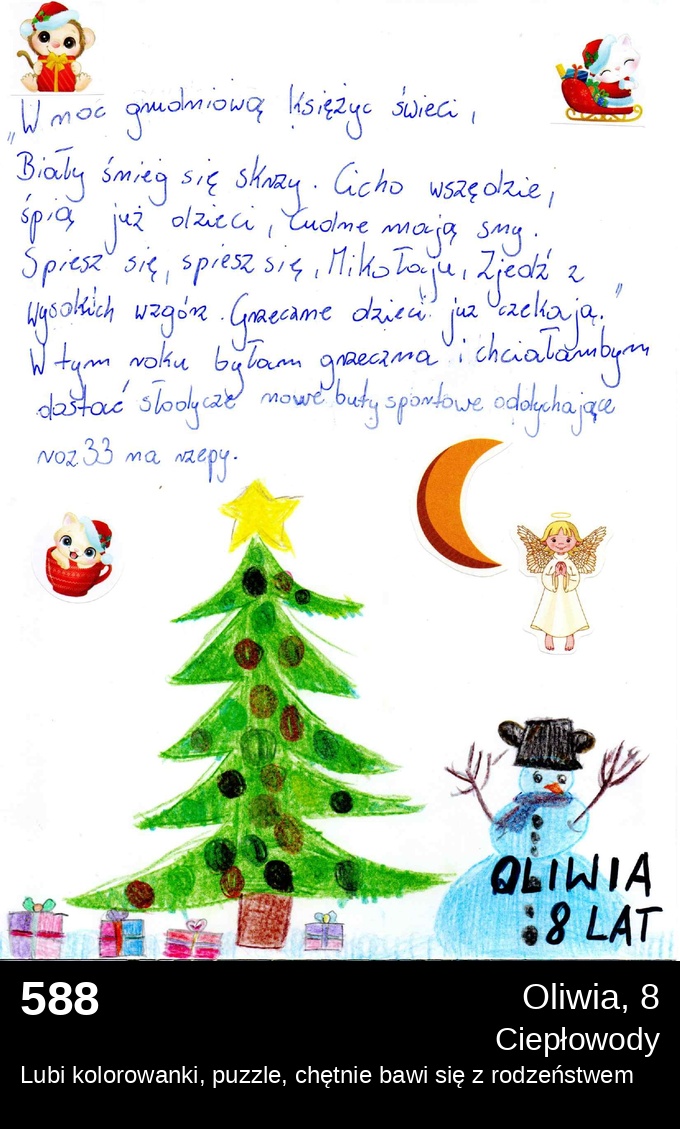 „W noc grudniową księżyc świeci,
Biały śnieg się skrzy. Cicho wszędzie,
śpią już dzieci, Cudne mają sny.
Spiesz się, spiesz się, Mikołaju, Zjedź z
wysokich wzgórz. Grzeczne dzieci już czekają."
W tym roku byłam grzeczna i chciałambym
dostać słodycze nowe buty sportowe oddychające
roz 33 na rzepy.
OLIWIA
8 LAT
588
Oliwia, 8
Ciepłowody
Lubi kolorowanki, puzzle, chętnie bawi się z rodzeństwem